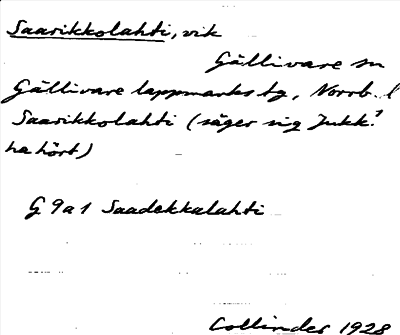 Saarikkolahti, vik
Gällivare sn
Gällivare lappmarks tg, Norrb. l
Saarikkolahti (säger sig Jukk.¹
ha hört)
G 9 a 1 Saadekkalahti
Collinder 1928